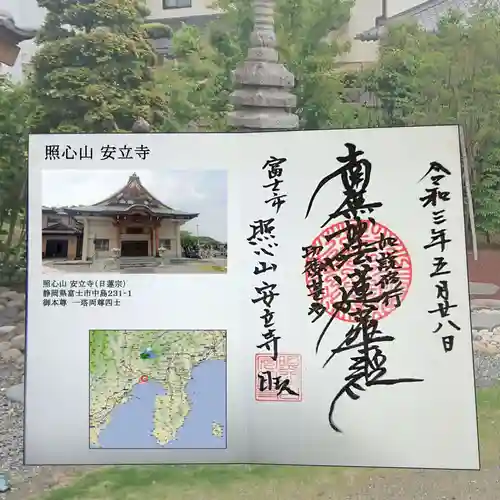 照心山 安立寺
照心山 安立寺(日蓮宗)
静岡県富士市中島231-1
御本尊 一塔両尊四士
令和三年五月廿八日
南無妙法蓮華経
富士市
照心山 安立寺